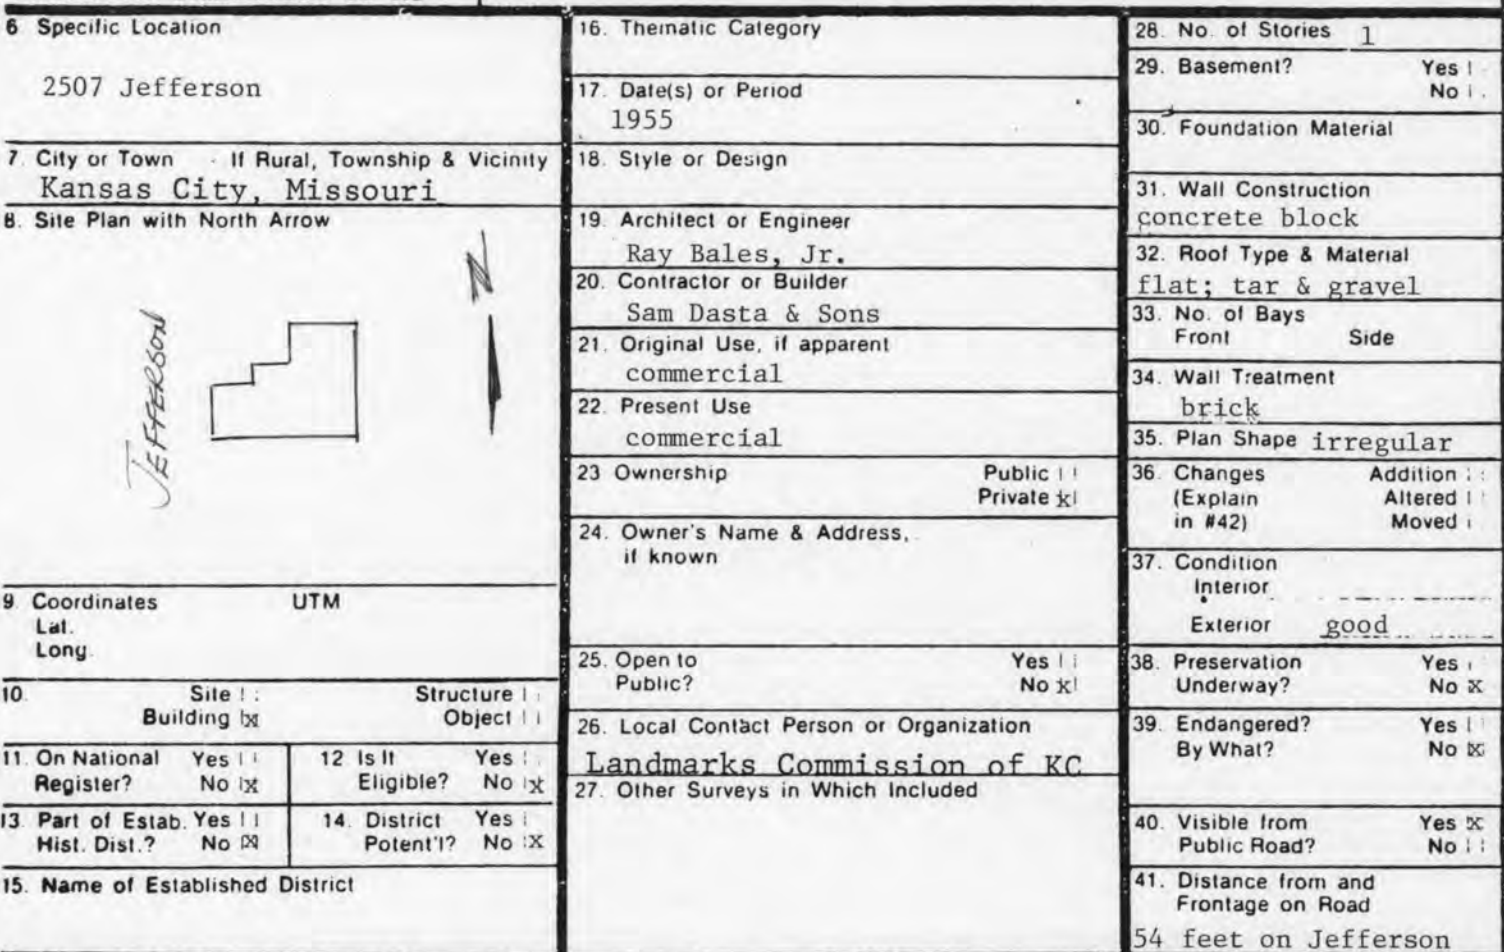 6 Specific Location
2507 Jefferson
7 City or Town If Rural, Township & Vicinity
Kansas City, Missouri
8. Site Plan with North Arrow
N
JEFFERSON
9. Coordinates UTM
Lat.
Long.
10. Site Structure
Building x Object
11. On National Yes 12 Is It Yes
Register? No x Eligible? No x
13. Part of Estab. Yes 14. District Yes
Hist. Dist.? No x Potent'l? No x
15. Name of Established District
16. Thematic Category
17. Date(s) or Period
1955
18. Style or Design
19. Architect or Engineer
Ray Bales, Jr.
20. Contractor or Builder
Sam Dasta & Sons
21. Original Use, if apparent
commercial
22. Present Use
commercial
23 Ownership Public
Private x
24. Owner's Name & Address,
if known
25. Open to Yes
Public? No x
26. Local Contact Person or Organization
Landmarks Commission of KC
27. Other Surveys in Which Included
28. No. of Stories 1
29. Basement? Yes
No
30. Foundation Material
31. Wall Construction
concrete block
32. Roof Type & Material
flat; tar & gravel
33. No. of Bays
Front Side
34. Wall Treatment
brick
35. Plan Shape irregular
36. Changes Addition
(Explain Altered
in #42) Moved
37. Condition
Interior
Exterior good
38. Preservation Yes
Underway? No x
39. Endangered? Yes
By What? No x
40. Visible from Yes x
Public Road? No
41. Distance from and
Frontage on Road
54 feet on Jefferson